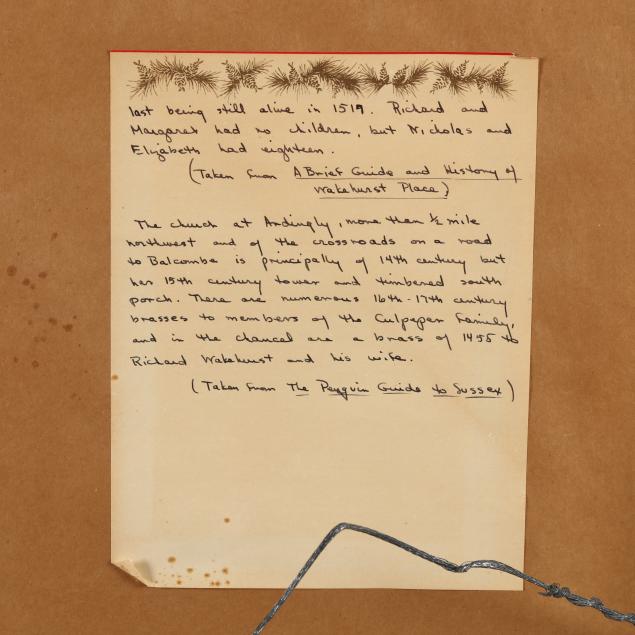 last being still alive in 1519. Richard and
Margaret had no children, but Nicholas and
Elizabeth had eighteen.
(Taken from A Brief Guide and History of
Wakehurst Place)
The church at Ardingly, more than ½ mile
northwest end of the crossroads on a road
to Balcombe is principally of 14th century but
has 15th century tower and timbered south
porch. There are numerous 16th-17th century
brasses to members of the Culpeper Family,
and in the chancel are a brass of 1455 to
Richard Wakehurst and his wife.
(Taken from The Penguin Guide to Sussex)